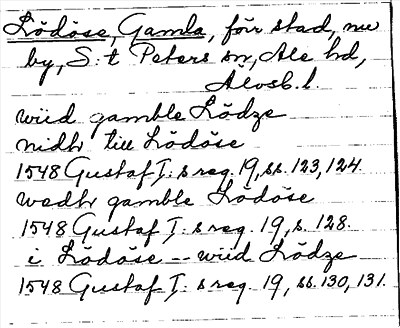 Lödöse, Gamla, förr stad, nu
by, S:t Peters sn, Ale hd,
Älvsb. l.
wiid gamble Lödze
nidh till Lödöse
1548 Gustaf I:s reg. 19, ss. 123, 124.
wedh gamble Lödöse
1548 Gustaf I:s reg. 19, s. 128.
i Lödöse -- wiid Lödze
1548 Gustaf I:s reg. 19, ss. 130, 131.